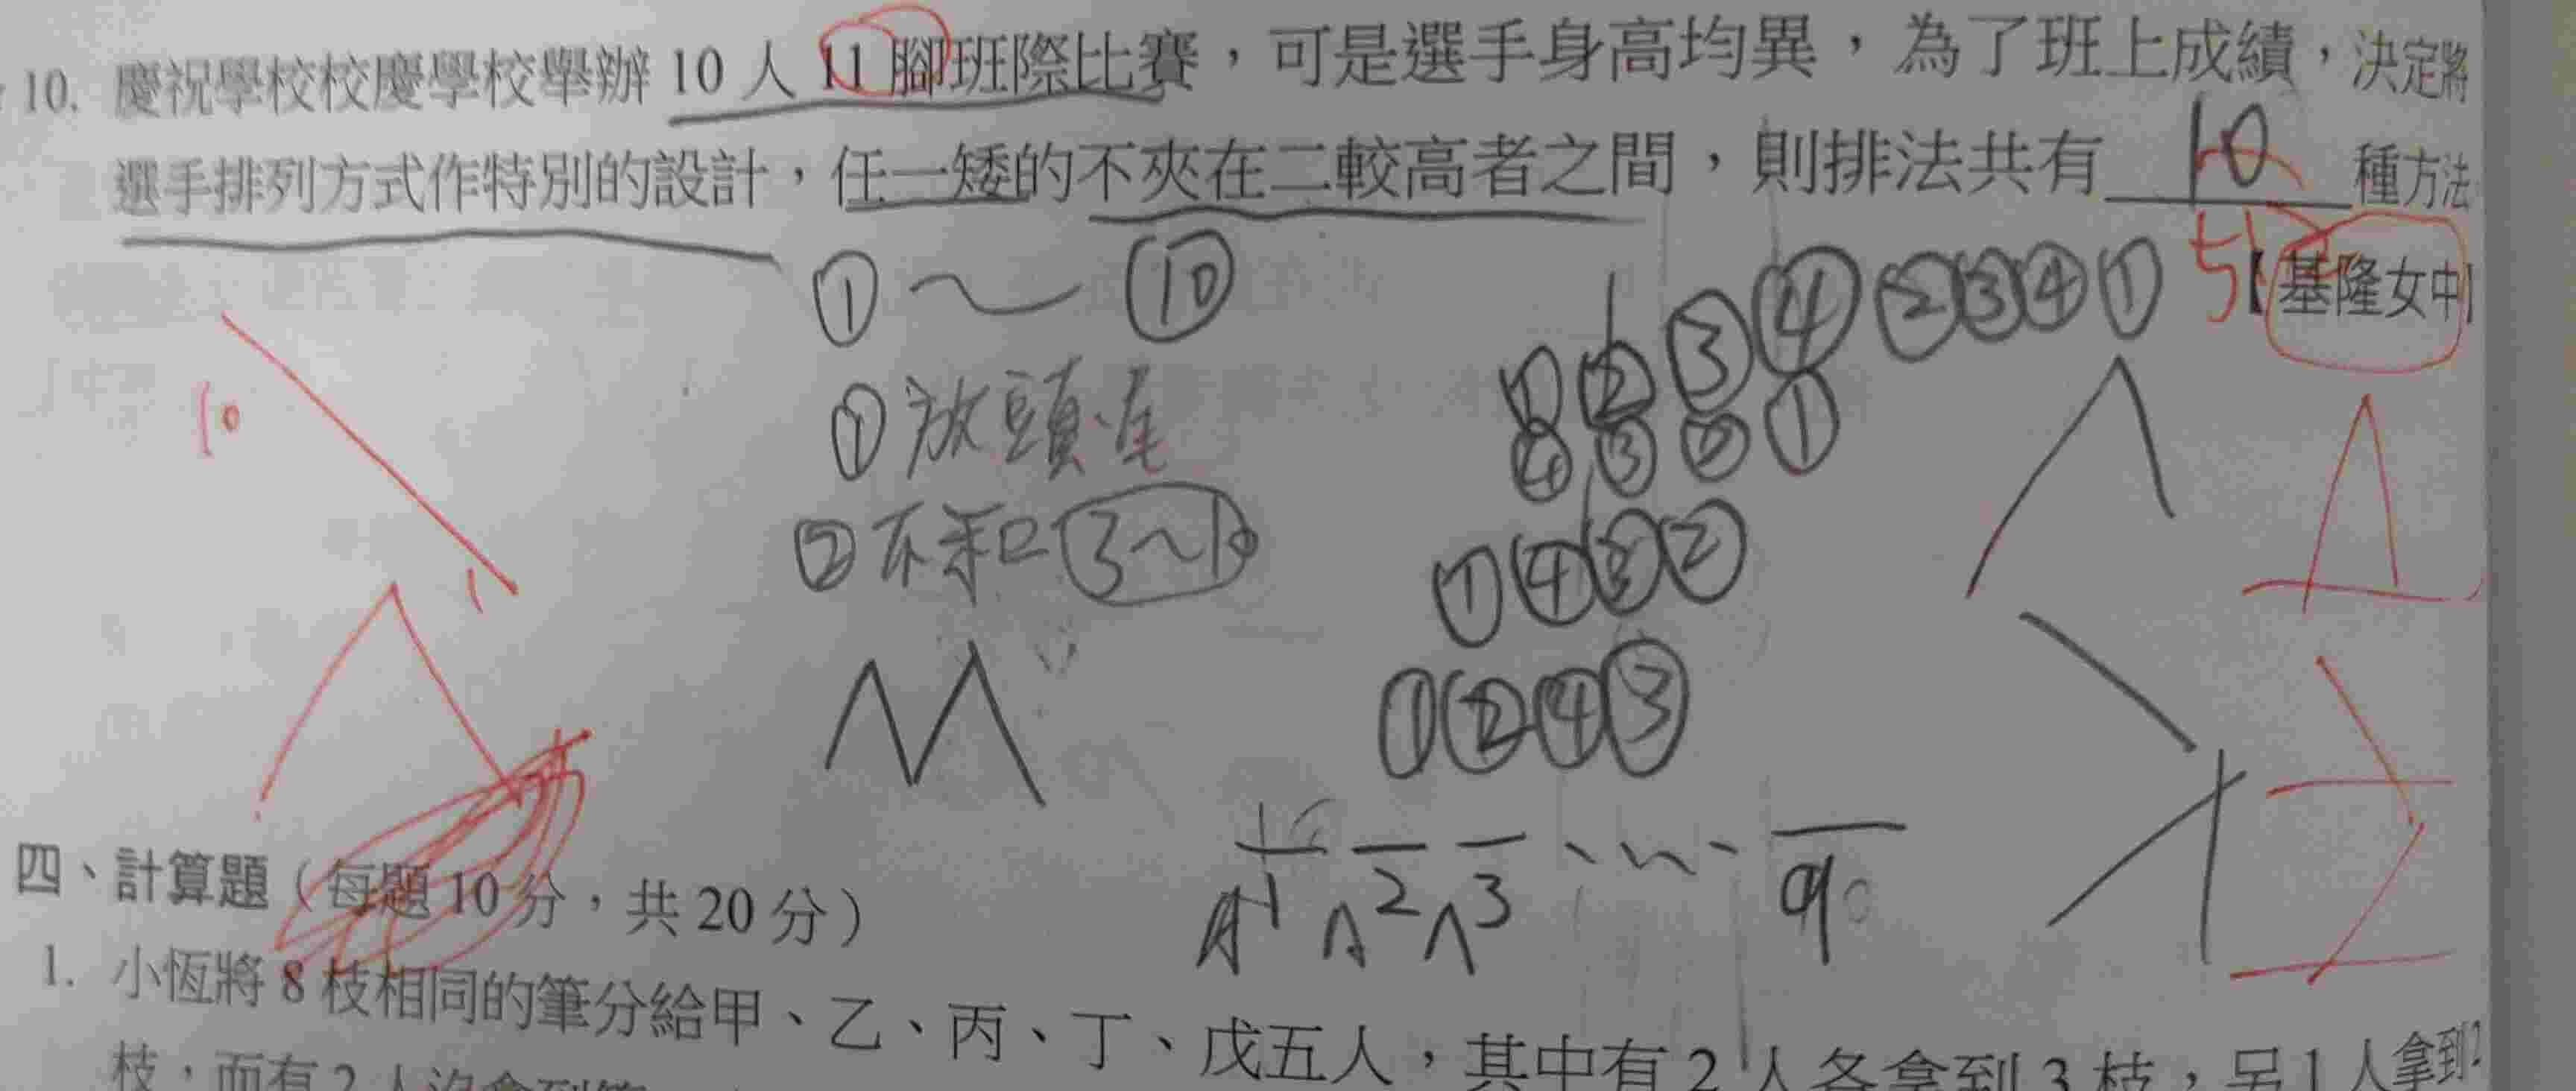 10. 慶祝學校校慶學校舉辦 10 人 11 腳班際比賽，可是選手身高均異，為了班上成績，決定將
選手排列方式作特別的設計，任一矮的不夾在二較高者之間，則排法共有 10 種方法
512
【基隆女中】
① ～ ⑩
① ② ③ ④ ② ③ ④ ①
10
① 放頭、尾
④ ③ ② ①
② 不和 ③～10
① ④ ③ ②
1
① ② ④ ③
1 2 3 9
四、計算題（每題 10 分，共 20 分）
1. 小恆將 8 枝相同的筆分給甲、乙、丙、丁、戊五人，其中有 2 人各拿到 3 枝，另 1 人拿到 2
枝，而有 2 人沒拿到筆